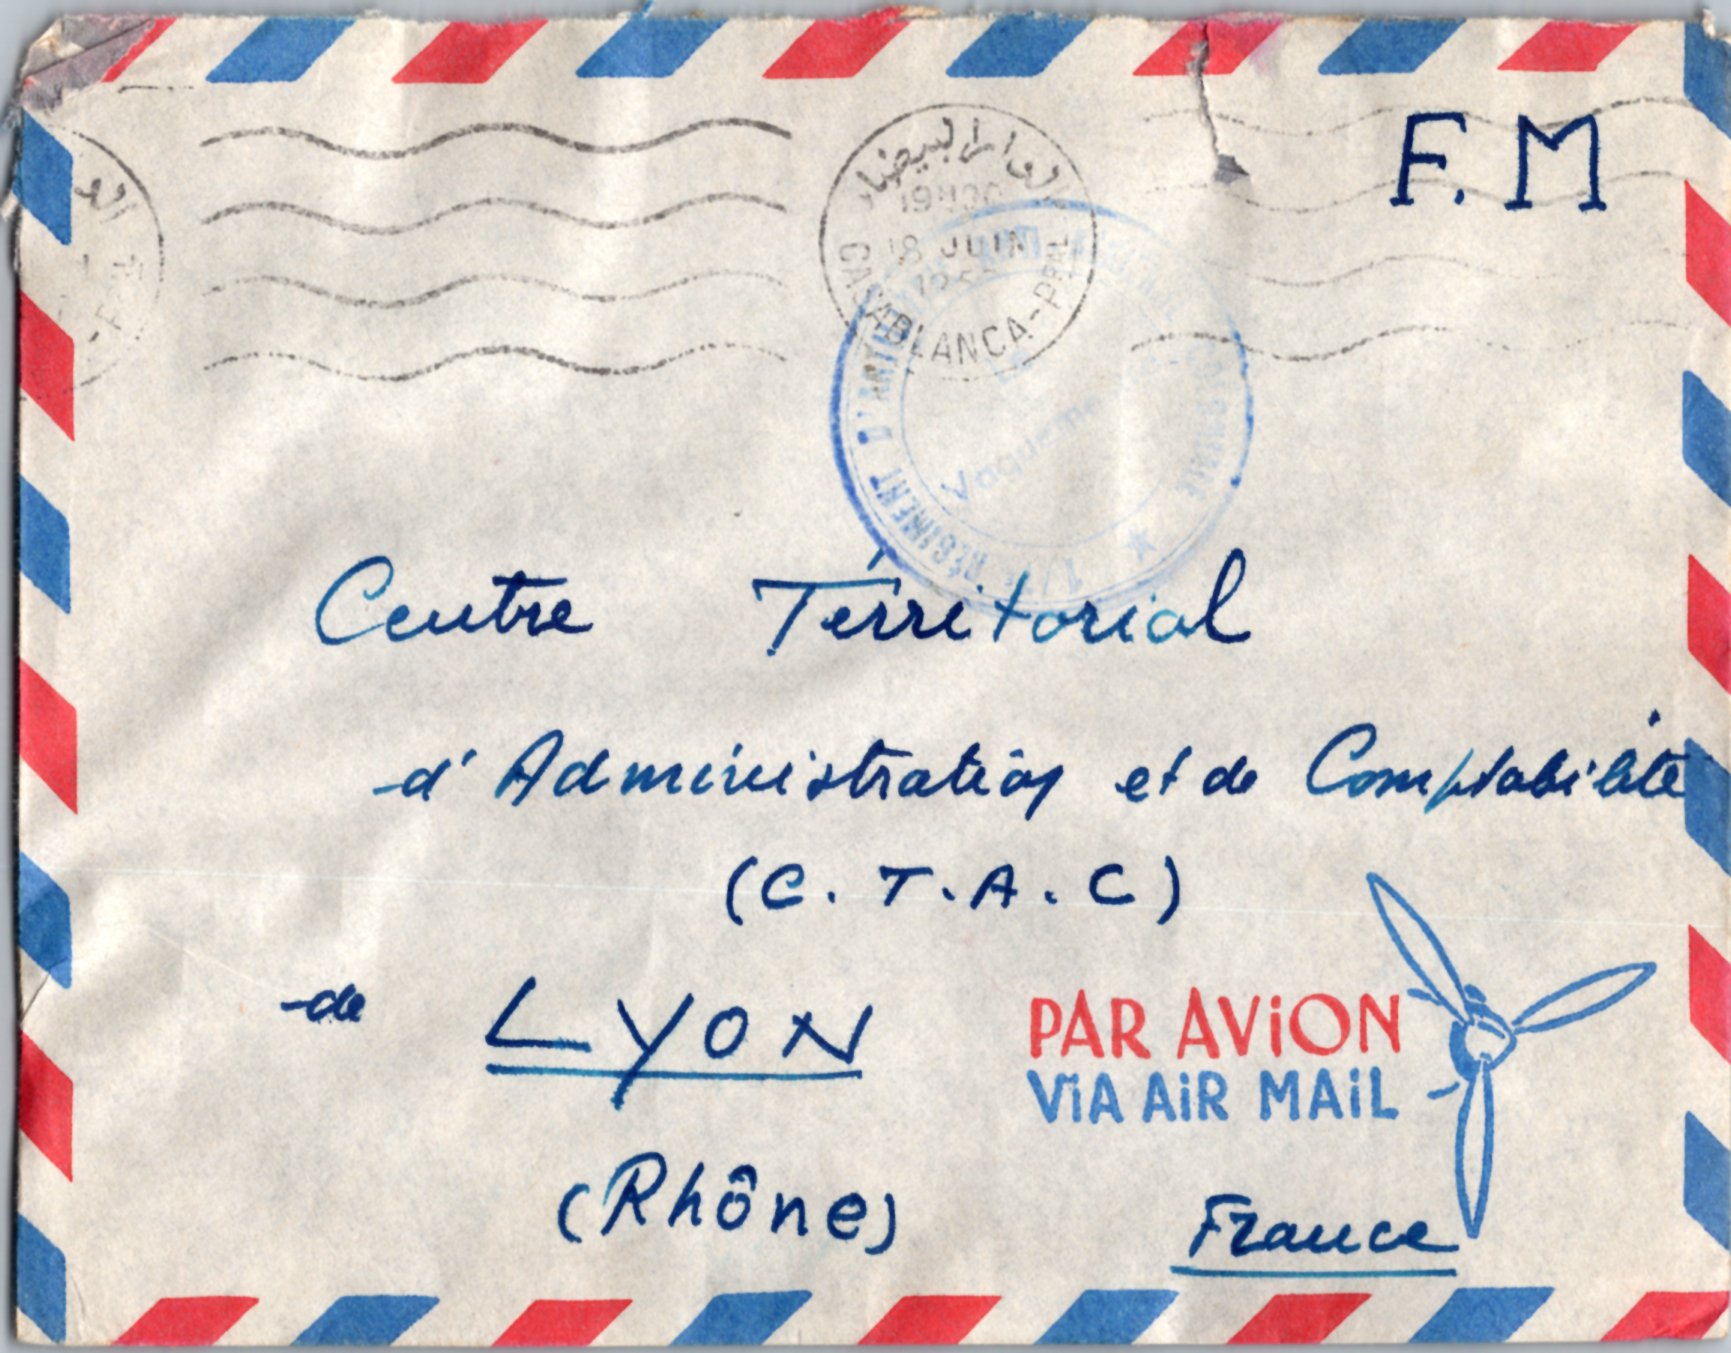 F.M
الدار البيضاء
19H00
18 JUIN
CASABLANCA-PPAL
RÉGIMENT D'ARTILLERIE COLONIALE
Vaguemestre
Centre Térritorial
d'Administration et de Comptabilité
(C.T.A.C)
de LYON
PAR AViON
ViA AiR MAiL
(Rhône)
France